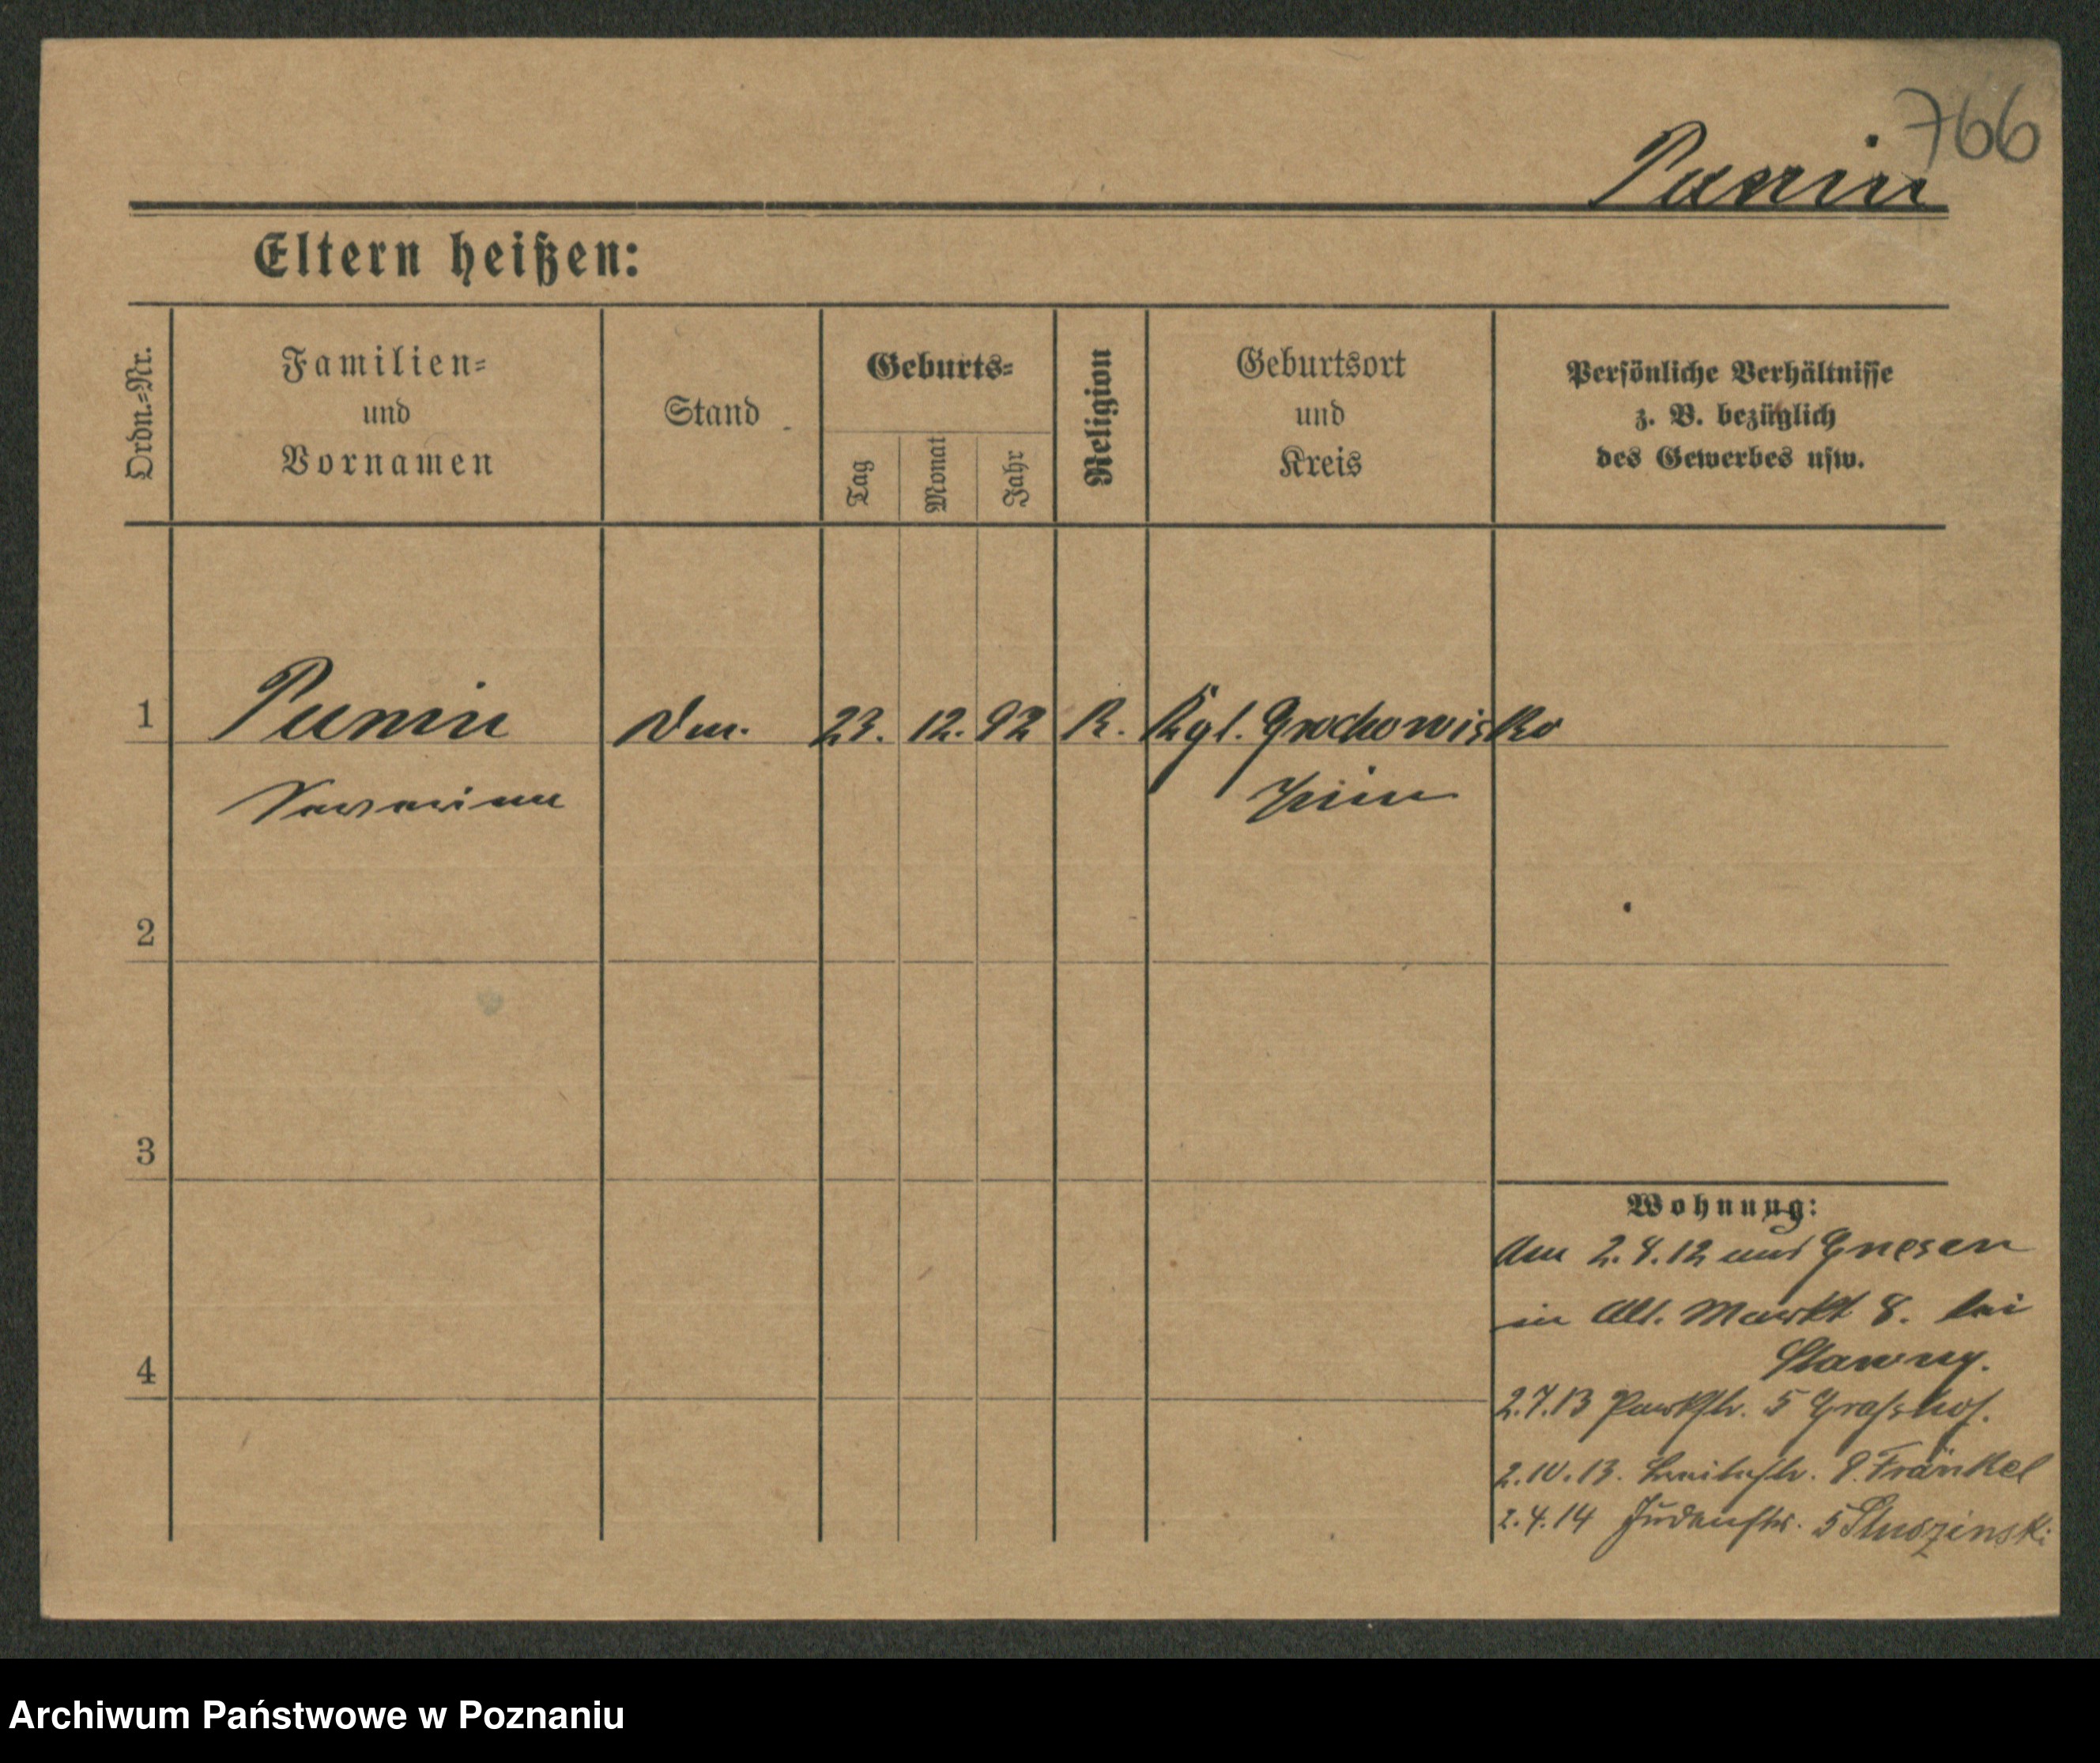 766
Punin
Eltern heißen:
Ordn.-Nr.
Familien-
und
Vornamen
Stand
Geburts-
Tag
Monat
Jahr
Religion
Geburtsort
und
Kreis
Persönliche Verhältnisse
z. B. bezüglich
des Gewerbes usw.
1 Punin 23. 12. 92 R. Kgl. Grochowisko
Znin
2
3
4
Wohnung:
Am 2.4.12 aus Gnesen
in Alt. Markt 8. bei
Slawny.
2.7.13 Parkstr. 5 Grasshof.
2.10.13. Breitestr. Fränkel
2.4.14 Judenstr. 5
Archiwum Państwowe w Poznaniu